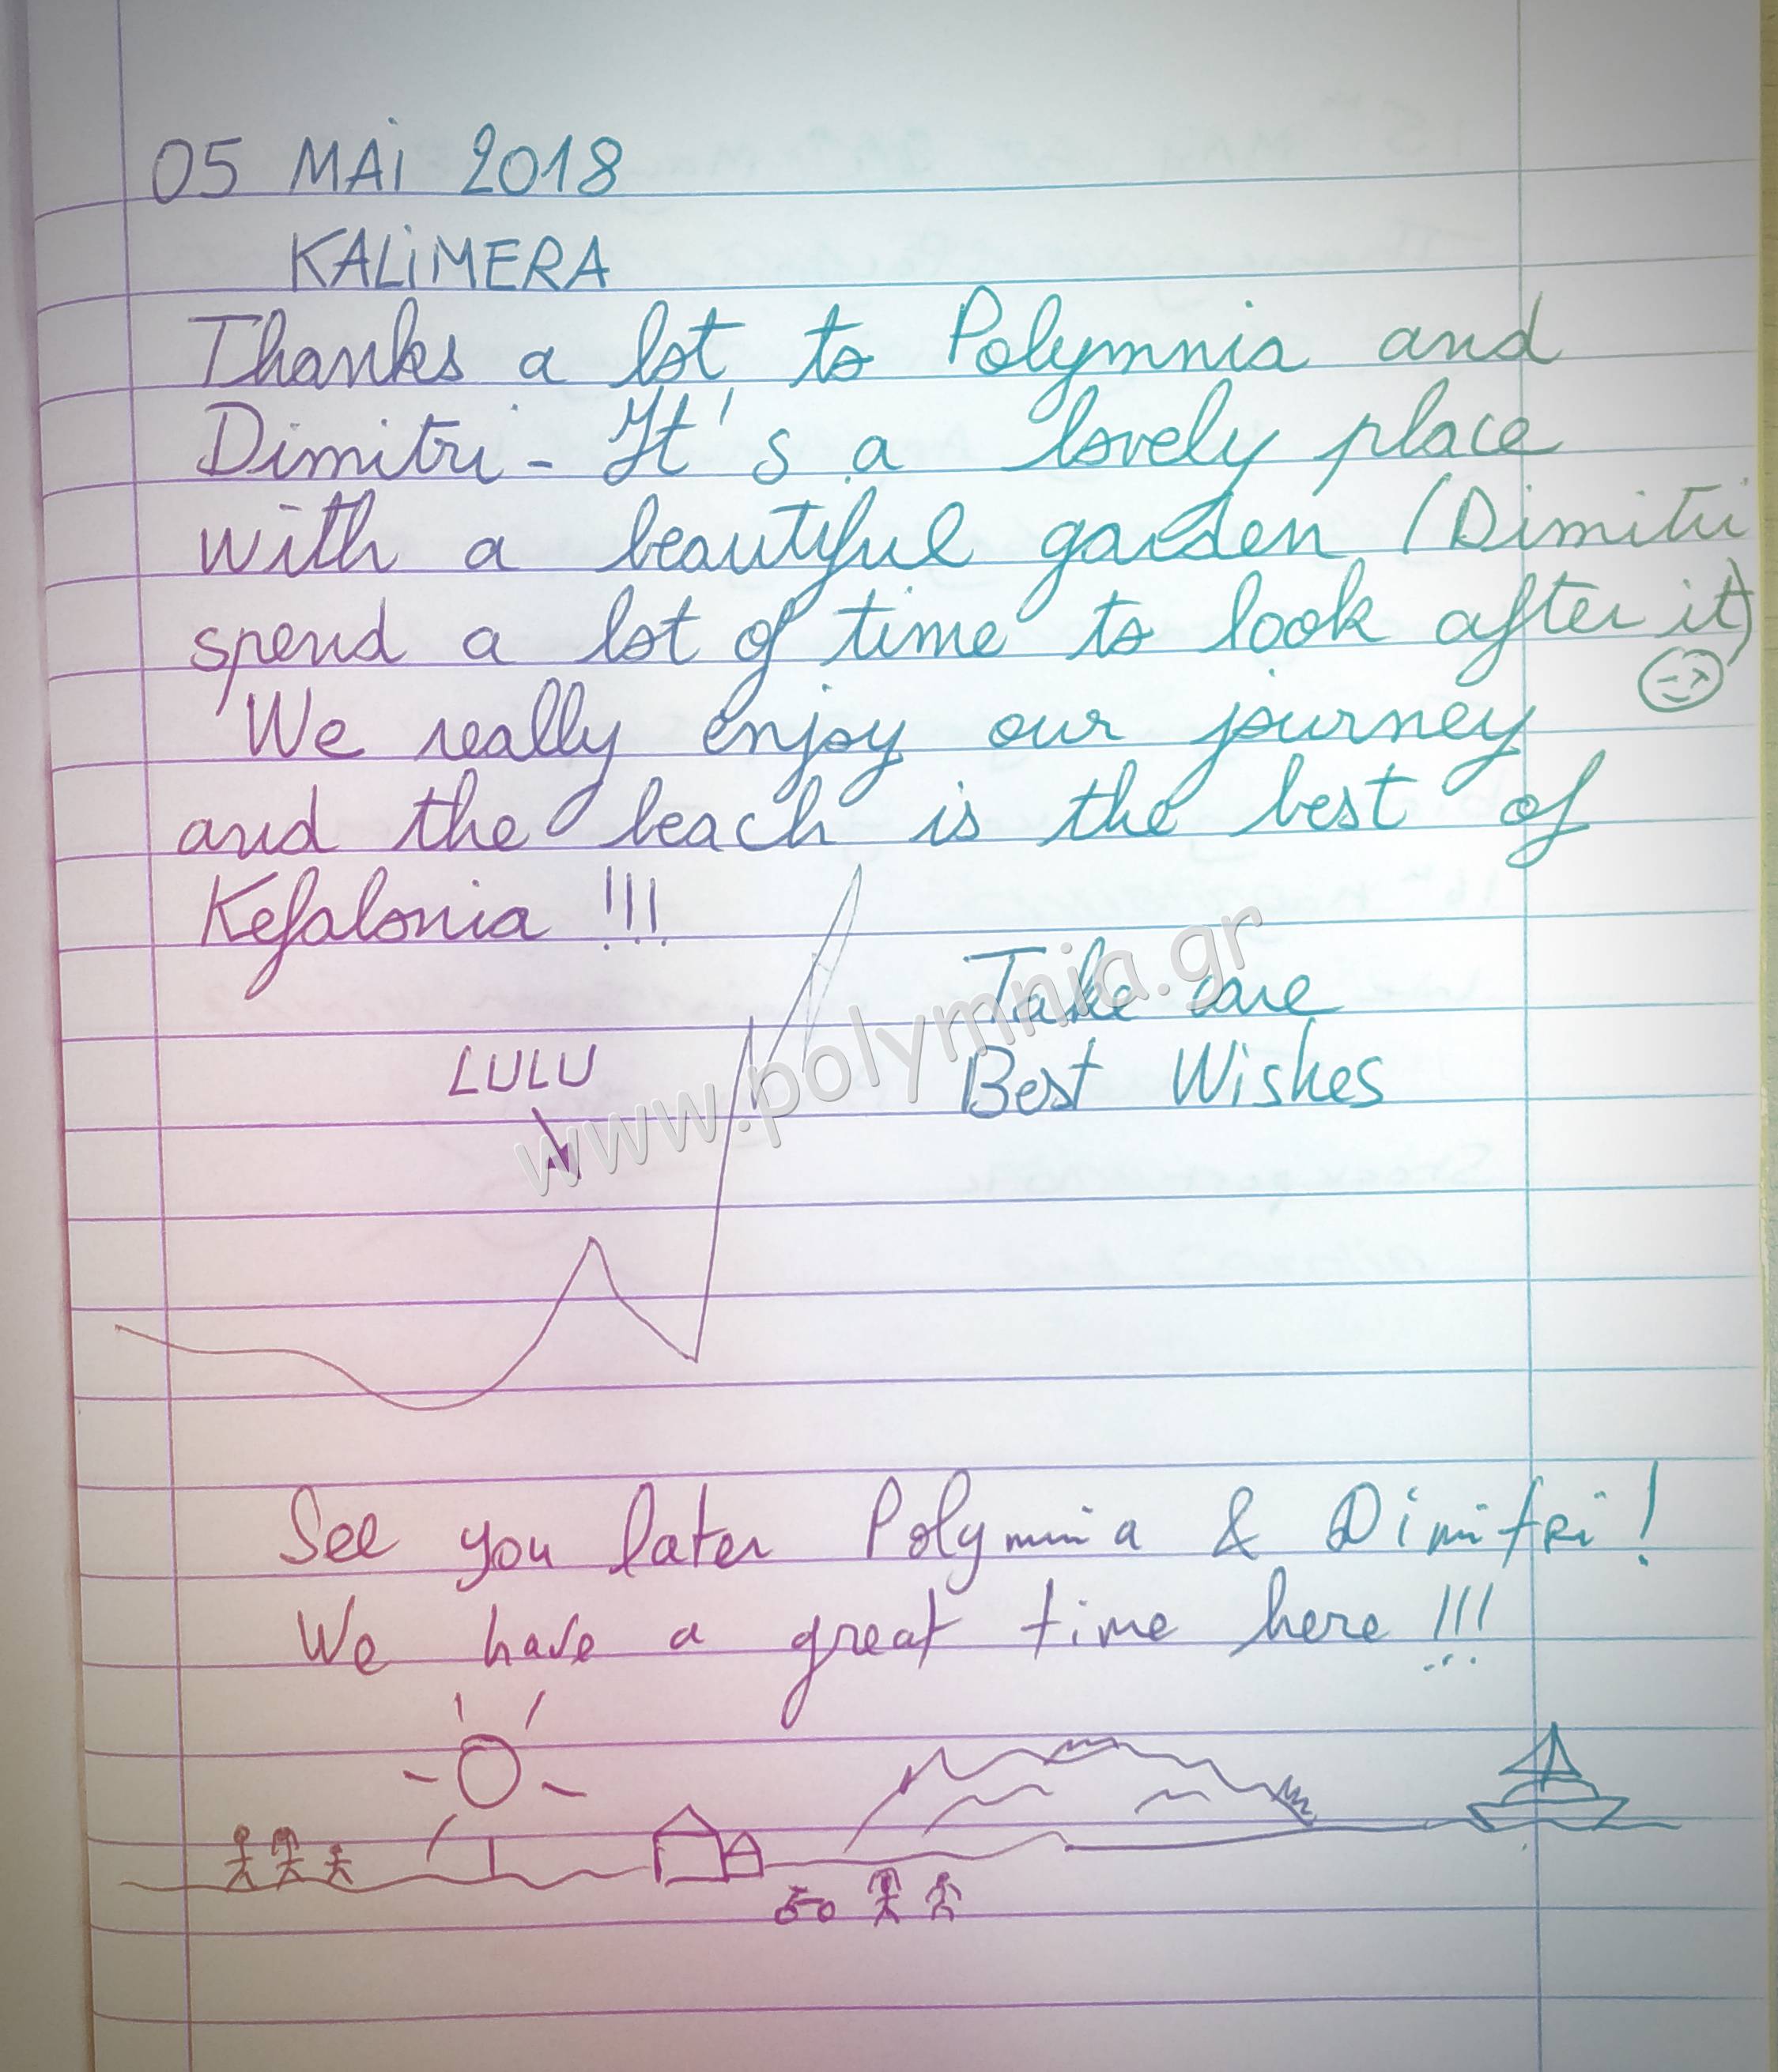 05 MAi 2018
KALiMERA
Thanks a lot to Polymnia and
Dimitri - It's a lovely place
with a beautiful garden (Dimitri
spend a lot of time to look after it)
We really enjoy our journey
and the beach is the best of
Kefalonia !!!
Take care
LULU
Best Wishes
www.polymnia.gr
See you later Polymnia & Dimitri !
We have a great time here !!!